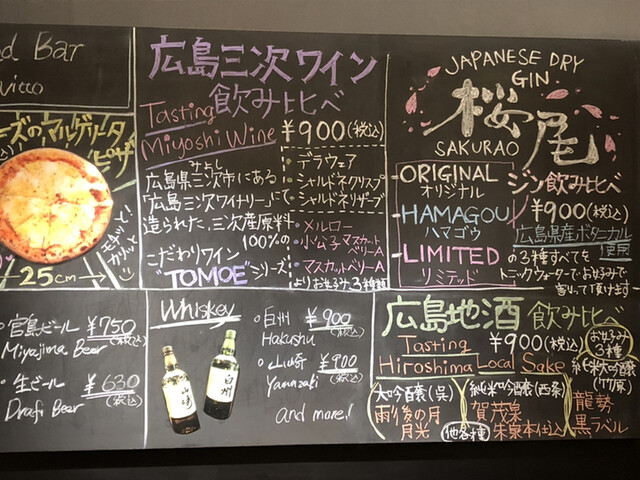 od Bar
ーズのマルゲリータ
ピザ
モチッと!
カリッと
25cm
広島三次ワイン
飲み比べ
Tasting
Miyoshi Wine
¥900(税込)
みよし
広島県三次市にある
広島三次ワイナリーにて
造られた、三次産原料
100%の
こだわりワイン
"TOMOE"シリーズ
・デラウェア
・シャルドネクリスプ
・シャルドネリザーブ
・メルロー
・小公子マスカット
ベリーA
・マスカットベリーA
よりお好み3種類
JAPANESE DRY
GIN
桜尾
SAKURAO
ORIGINAL
オリジナル
HAMAGOU
ハマゴウ
LIMITED
リミテッド
ジン飲み比べ
¥900(税込)
広島県産ボタニカル
使用
の3種すべてを
トニックウォーターでお好みで
割って頂けます
・宮島ビール ¥750
Miyajima Beer (税込)
・生ビール ¥630
Draft Beer (税込)
Whiskey
山崎
白州
・白州 ¥900
Hakushu (税込)
・山崎 ¥900
Yamazaki (税込)
and more!
広島地酒 飲み比べ
Tasting
Hiroshima Local Sake
¥900(税込)
お好み
3種
大吟醸(呉)
雨後の月
月光
純米吟醸(西条)
賀茂泉
朱泉本仕込
他各種
純米大吟醸
(竹原)
龍勢
黒ラベル